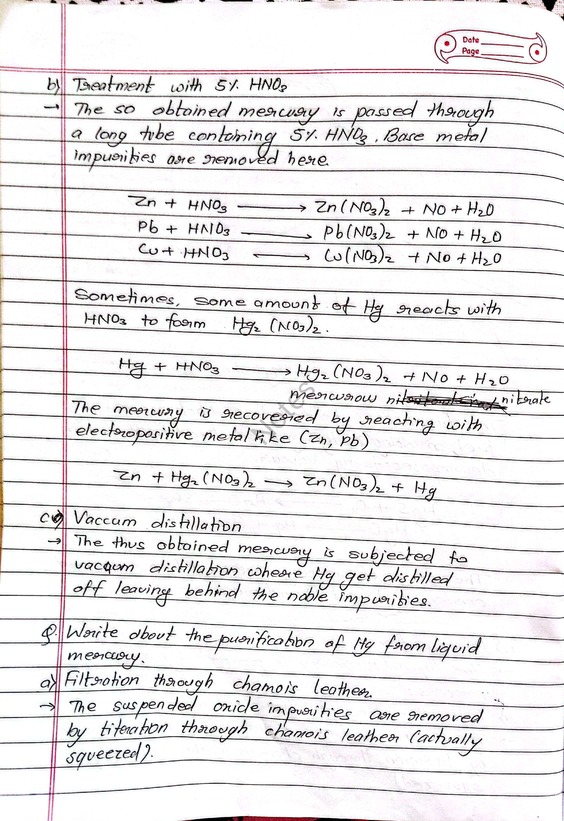 Date
Page
b) Treatment with 5% HNO3
→ The so obtained mercury is passed through
a long tube containing 5% HNO3. Base metal
impurities are removed here.
Zn + HNO3 ⟶ Zn(NO3)2 + NO + H2O
Pb + HNO3 ⟶ Pb(NO3)2 + NO + H2O
Cu + HNO3 ⟵⟶ Cu(NO3)2 + NO + H2O
Sometimes, some amount of Hg reacts with
HNO3 to form Hg2 (NO3)2.
Hg + HNO3 ⟶ Hg2(NO3)2 + NO + H2O
mercurow nitrate
The mercury is recoveried by reacting with
electropositive metal like (Zn, Pb)
Zn + Hg2(NO3)2 ⟶ Zn(NO3)2 + Hg
c) Vaccum distillation
→ The thus obtained mercury is subjected to
vacuum distillation where Hg get distilled
off leaving behind the noble impurities.
Q. Write about the purification of Hg from liquid
mercury.
a) Filtration through chamois leather.
→ The suspended oxide impurities are removed
by filteration through chamois leather (actually
squeezed).
Notes